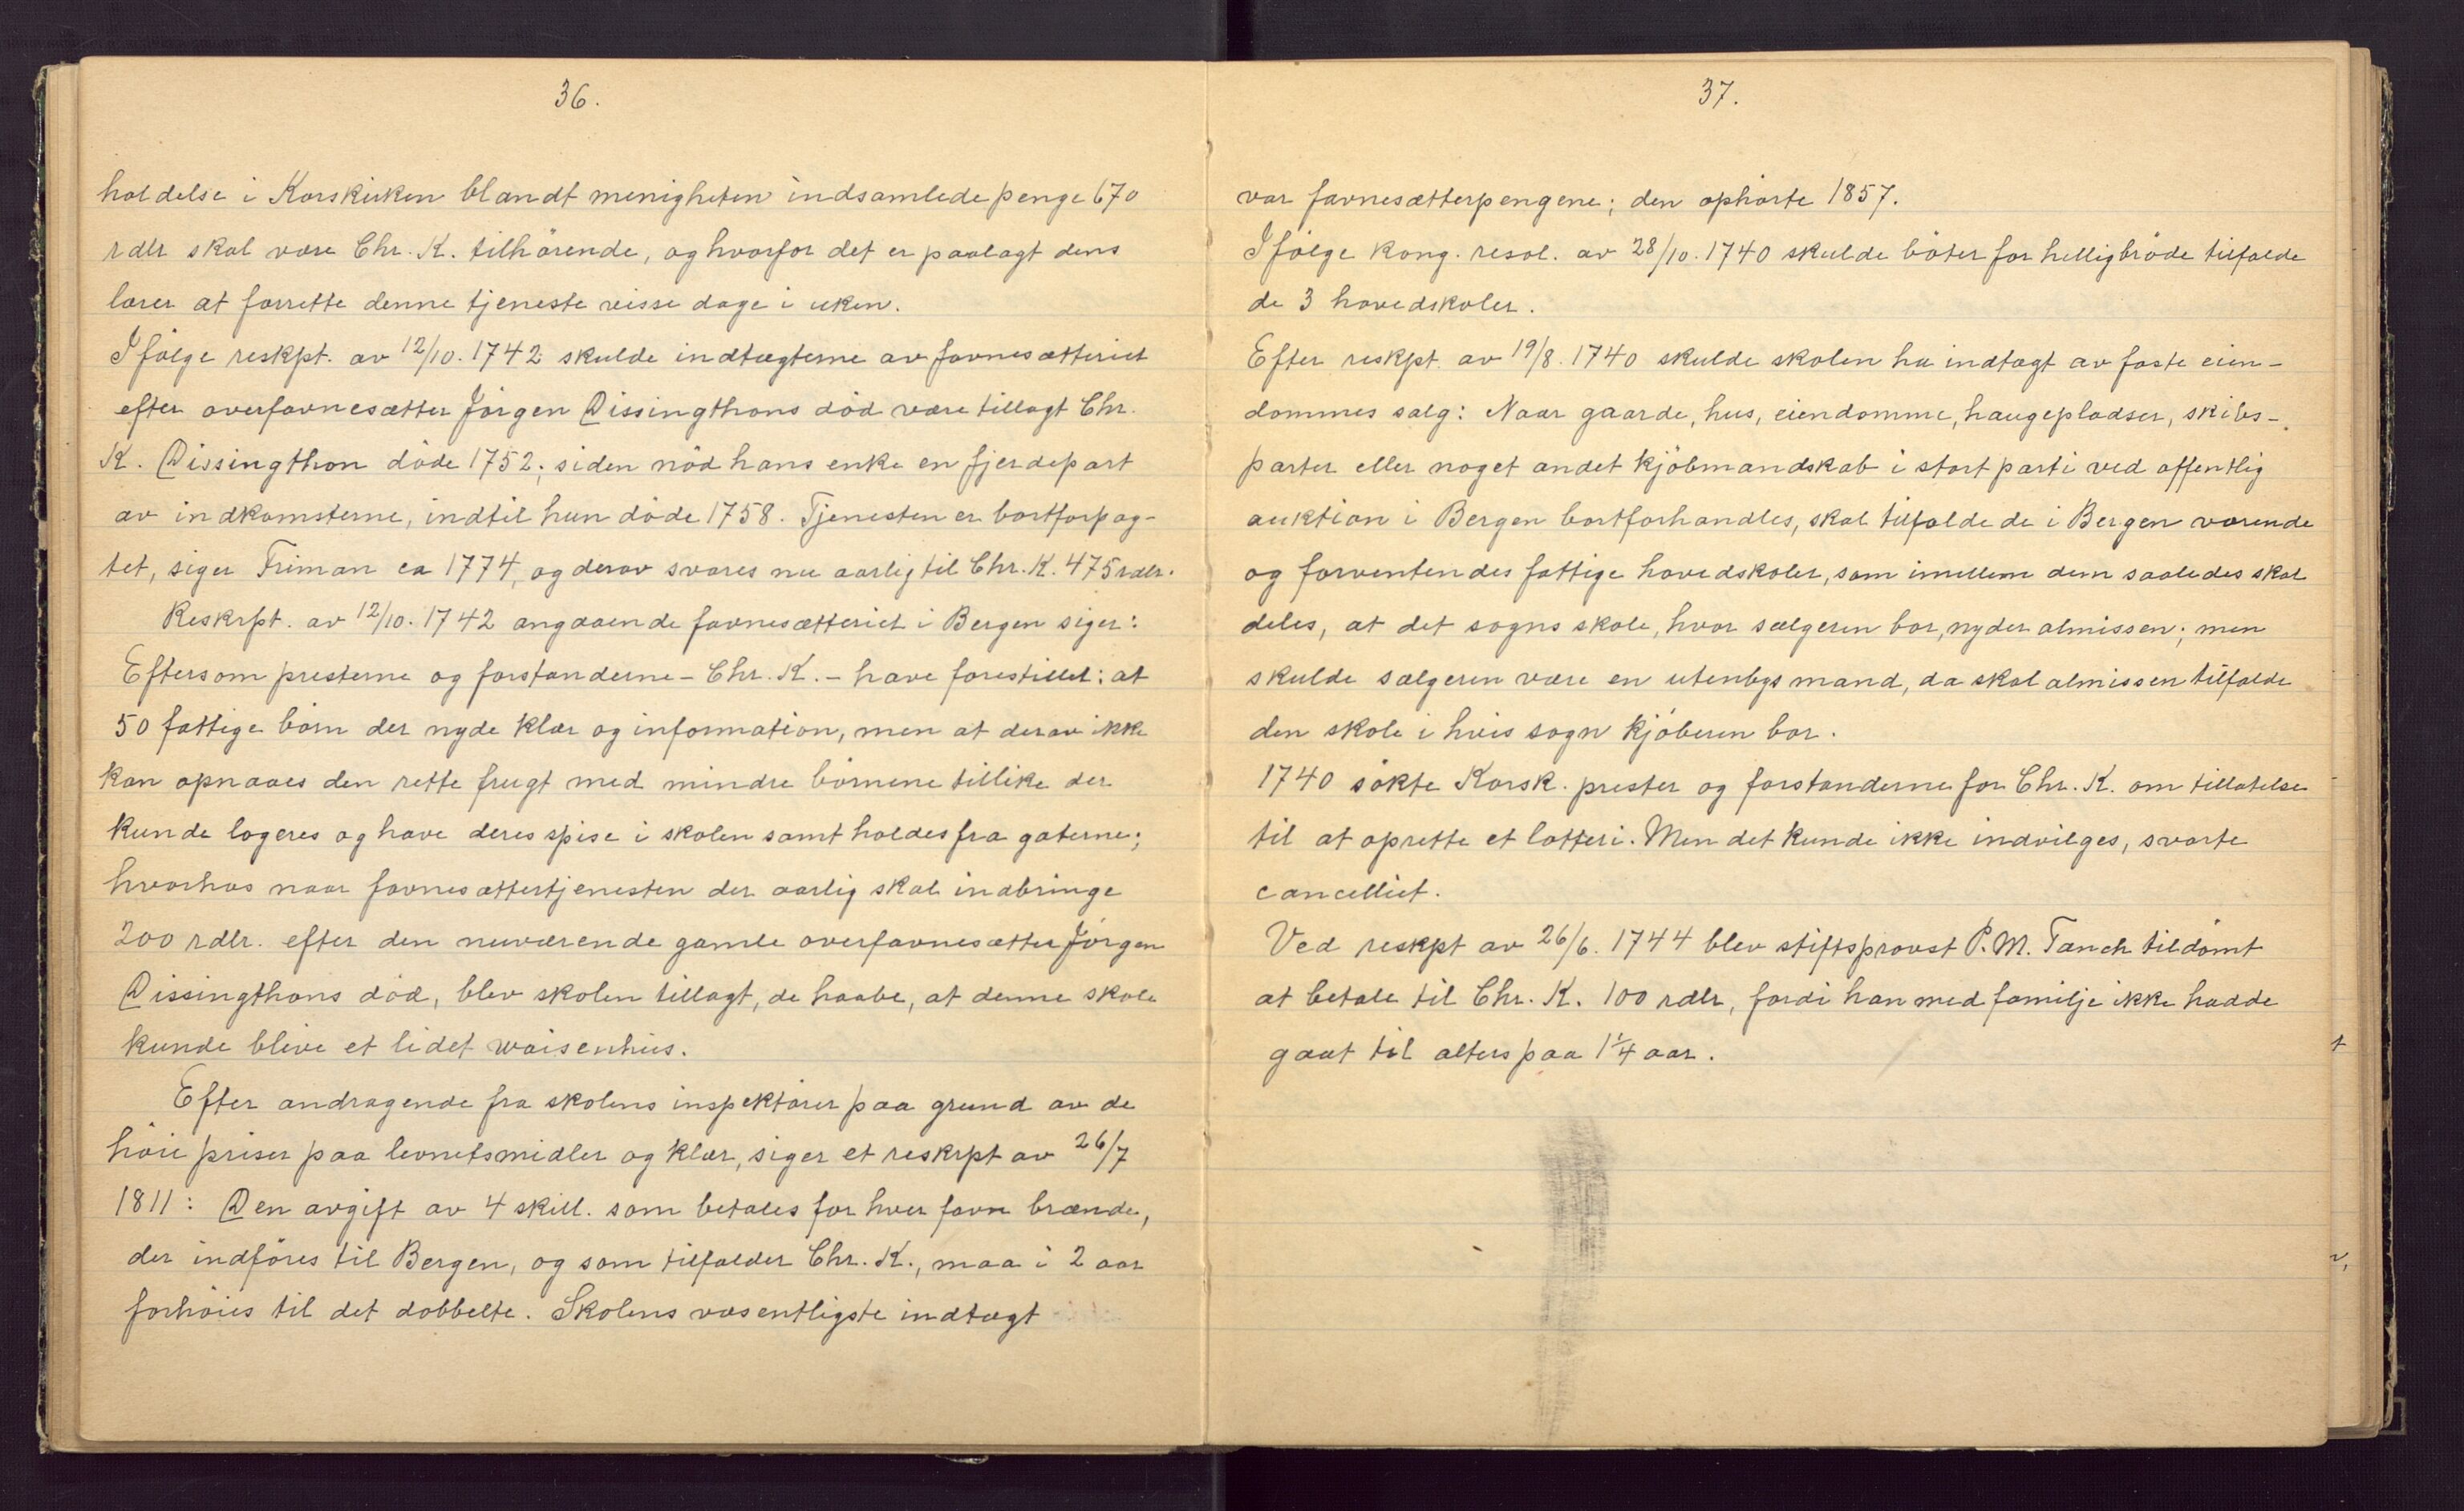 36.
holdelse i Korskirken blandt menigheten indsamlede penge 670
rdlr skal være Chr. K. tilhörende, og hvorfor det er paalagt dens
lærer at forrette denne tjeneste visse dage i uken.
Ifölge reskpt. av 12/10. 1742 skulde indtægterne av favnesætteriet
efter overfavnesætter Jörgen Dissingthons död være tillagt Chr.
K. Dissingthon döde 1752; siden nöd hans enke en fjerdepart
av indkomsterne, indtil hun döde 1758. Tjenesten er bortforpag-
tet, siger Friman ca 1774, og derav svares nu aarlig til Chr. K. 475 rdlr.
Reskrpt. av 12/10. 1742 angaaende favnesætteriet i Bergen siger:
Eftersom presterne og forstanderne - Chr. K. - have forestillet: at
50 fattige börn der nyde klær og information, men at derav ikke
kan opnaaes den rette frugt med mindre börnene tillike der
kunde logeres og have deres spise i skolen samt holdes fra gaterne;
hvorhos naar favnesættertjenesten der aarlig skal indbringe
200 rdlr. efter den nuværende gamle overfavnesætter Jörgen
Dissingthons död, blev skolen tillagt, de haabe, at denne skole
kunde blive et lidet waisenhus.
Efter andragende fra skolens inspektörer paa grund av de
höie priser paa levnetsmidler og klær, siger et reskrpt av 26/7
1811: Den avgift av 4 skill. som betales for hver favn brænde,
der indföres til Bergen, og som tilfalder Chr. K., maa i 2 aar
forhöies til det dobbelte. Skolens væsentligste indtægt
37.
var favnesætterpengene; den ophörte 1857.
Ifölge kong. resol. av 28/10. 1740 skulde böter for helligbröde tilfalde
de 3 hovedskoler.
Efter reskpt. av 19/8. 1740 skulde skolen ha indtægt av faste eien-
dommes salg: Naar gaarde, hus, eiendomme, haugepladser, skibs-
parter eller noget andet kjöbmandskab i stort parti ved offentlig
auktion i Bergen bortforhandles, skal tilfalde de i Bergen værende
og forventendes fattige hovedskoler, som imellem dem saaledes skal
deles, at det sogns skole, hvor sælgeren bor, nyder almissen; men
skulde sælgeren være en utenbys mand, da skal almissen tilfalde
den skole i hvis sogn kjöberen bor.
1740 sökte Korsk. prester og forstanderne for Chr. K. om tillatelse
til at oprette et lotteri. Men det kunde ikke indvilges, svarte
cancelliet.
Ved reskpt av 26/6. 1744 blev stiftsprovst P. M. Tanch tildömt
at betale til Chr. K. 100 rdlr, fordi han med familje ikke hadde
gaat til alters paa 1 1/4 aar.